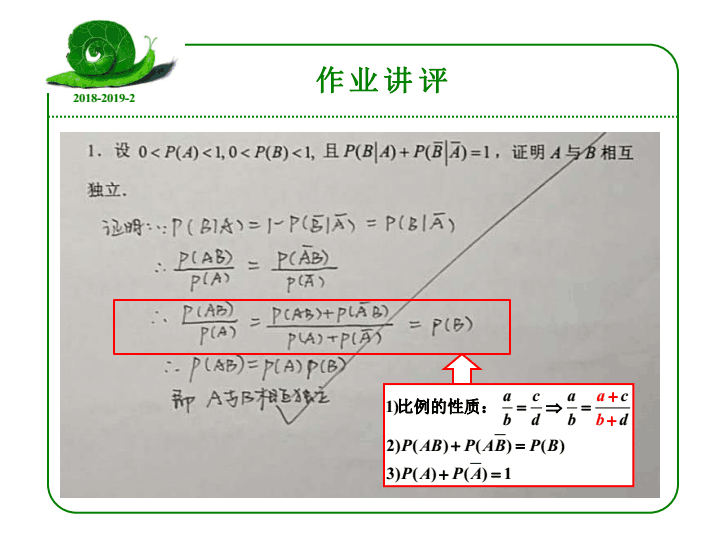 作业讲评
2018-2019-2
1. 设 0<P(A)<1, 0<P(B)<1, 且 P(B|A)+P(B̅|A̅)=1，证明 A 与 B 相互
独立.
证明:∵P(B|A)=1-P(B̅|A̅)=P(B|A̅)
∴ P(AB)/P(A) = P(A̅B)/P(A̅)
∴ P(AB)/P(A) = (P(AB)+P(A̅B))/(P(A)+P(A̅)) = P(B)
∴ P(AB)=P(A)P(B)
即 A与B相互独立
1)比例的性质： a/b = c/d ⇒ a/b = (a+c)/(b+d)
2)P(AB)+P(AB̅)=P(B)
3)P(A)+P(A̅)=1